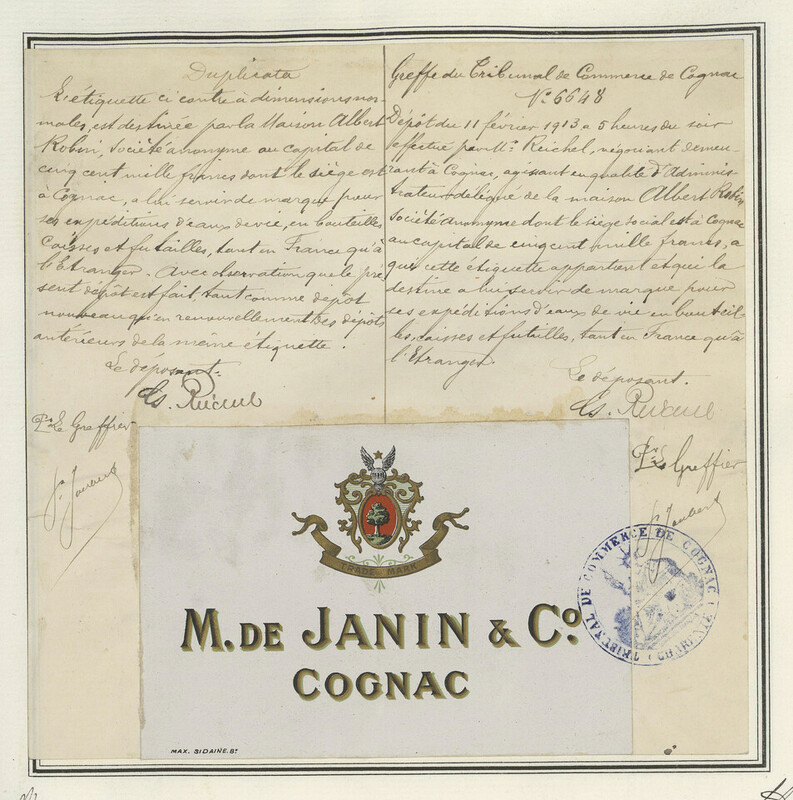 Duplicata
L'étiquette ci contre à dimensions nor-
males, est destinée par la Maison Albert
Robin, Société anonyme au capital de
cinq cent mille francs dont le siège est
à Cognac, à lui servir de marque pour
ses expéditions d'eaux de vie, en bouteilles
caisses et futailles, tant en France qu'à
l'Etranger. Avec observation que le pré-
sent dépôt est fait, tant comme dépôt
nouveau qu'en renouvellement des dépôts
antérieurs de la même étiquette.
Le déposant.
Pr. Le Greffier
Greffe du Tribunal de Commerce de Cognac
No. 6648
Dépôt du 11 février 1913 à 5 heures du soir
effectué par Mr. Reichel, négociant demeu-
rant à Cognac, agissant en qualité d'Adminis-
trateur délégué de la maison Albert Robin
Société Anonyme dont le siège social est à Cognac
au capital de cinq cent mille francs, à
qui cette étiquette appartient et qui la
destine à lui servir de marque pour
ses expéditions d'eaux de vie en bouteil
les, caisses et futailles, tant en France qu'à
l'Etranger.
Le déposant.
Pr. Le Greffier
TRIBUNAL DE COMMERCE DE COGNAC (CHARENTE)
TRADE MARK
M. DE JANIN & Co.
COGNAC
MAX. SIDAINE. Bx